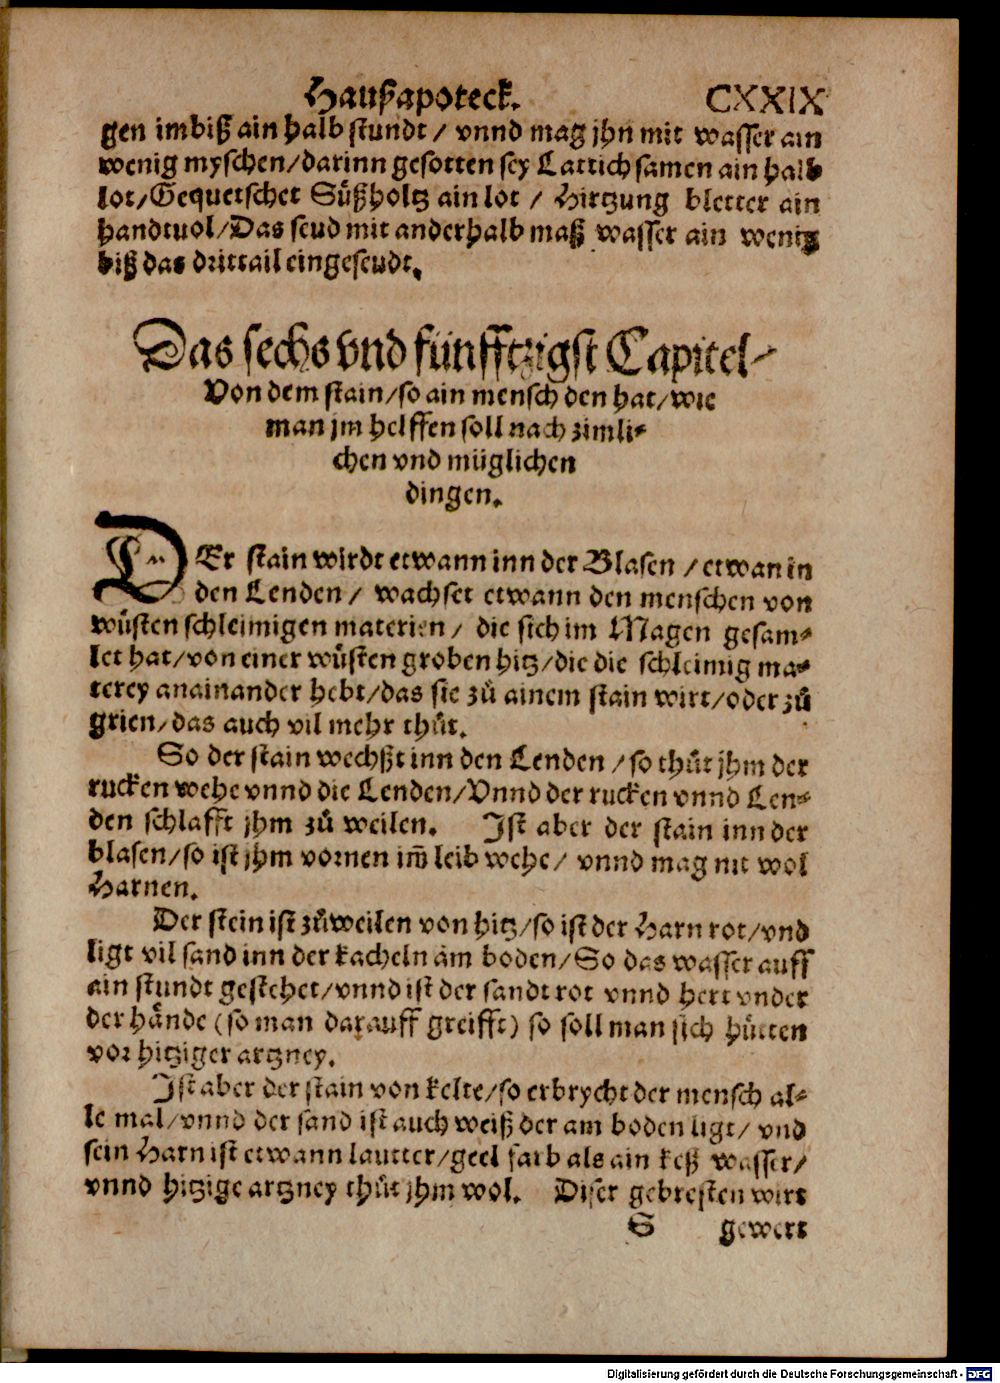 Haußapoteck. CXXIX
gen imbiß ain halb stundt / vnnd mag jhn mit wasser ain
wenig myschen / darinn gesotten sey Lattich samen ain halb
lot / Gequetschet Süßholtz ain lot / Hirtzung bletter ain
handtuol / Das seud mit anderhalb maß wasser ain wenig
biß das drittail eingeseudt.
Das sechs vnd fünfftzigst Capitel-
Von dem stain / so ain mensch den hat / wie
man jm helffen soll nach zimli-
chen vnd müglichen
dingen.
DEr stain wirdt etwann inn der Blasen / etwan in
den Lenden / wachset etwann den menschen von
wůsten schleimigen materien / die sich im Magen gesam-
let hat / von einer wůsten groben hitz / die die schleimig ma-
terey anainander hebt / das sie zů ainem stain wirt / oder zů
grien / das auch vil mehr thůt.
So der stain wechßt inn den Lenden / so thůt jhm der
rucken wehe vnnd die Lenden / Vnnd der rucken vnnd Len-
den schlafft jhm zů weilen. Ist aber der stain inn der
blasen / so ist jhm vornen im̄ leib wehe / vnnd mag nit wol
Harnen.
Der stein ist zůweilen von hitz / so ist der Harn rot / vnd
ligt vil sand inn der kacheln am boden / So das wasser auff
ain stundt gestehet / vnnd ist der sandt rot vnnd hert vnder
der hände (so man darauff greifft) so soll man sich hütten
vor hitziger artzney.
Ist aber der stain von kelte / so erbrycht der mensch al-
le mal / vnnd der sand ist auch weiß der am boden ligt / vnd
sein Harn ist etwann lautter / geel farb als ain keß wasser /
vnnd hitzige artzney thůt jhm wol. Diser gebresten wirt
S gewert
Digitalisierung gefördert durch die Deutsche Forschungsgemeinschaft - DFG